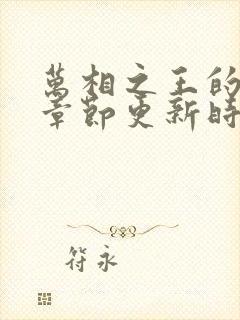 萬相之王的
章節更新時
符永